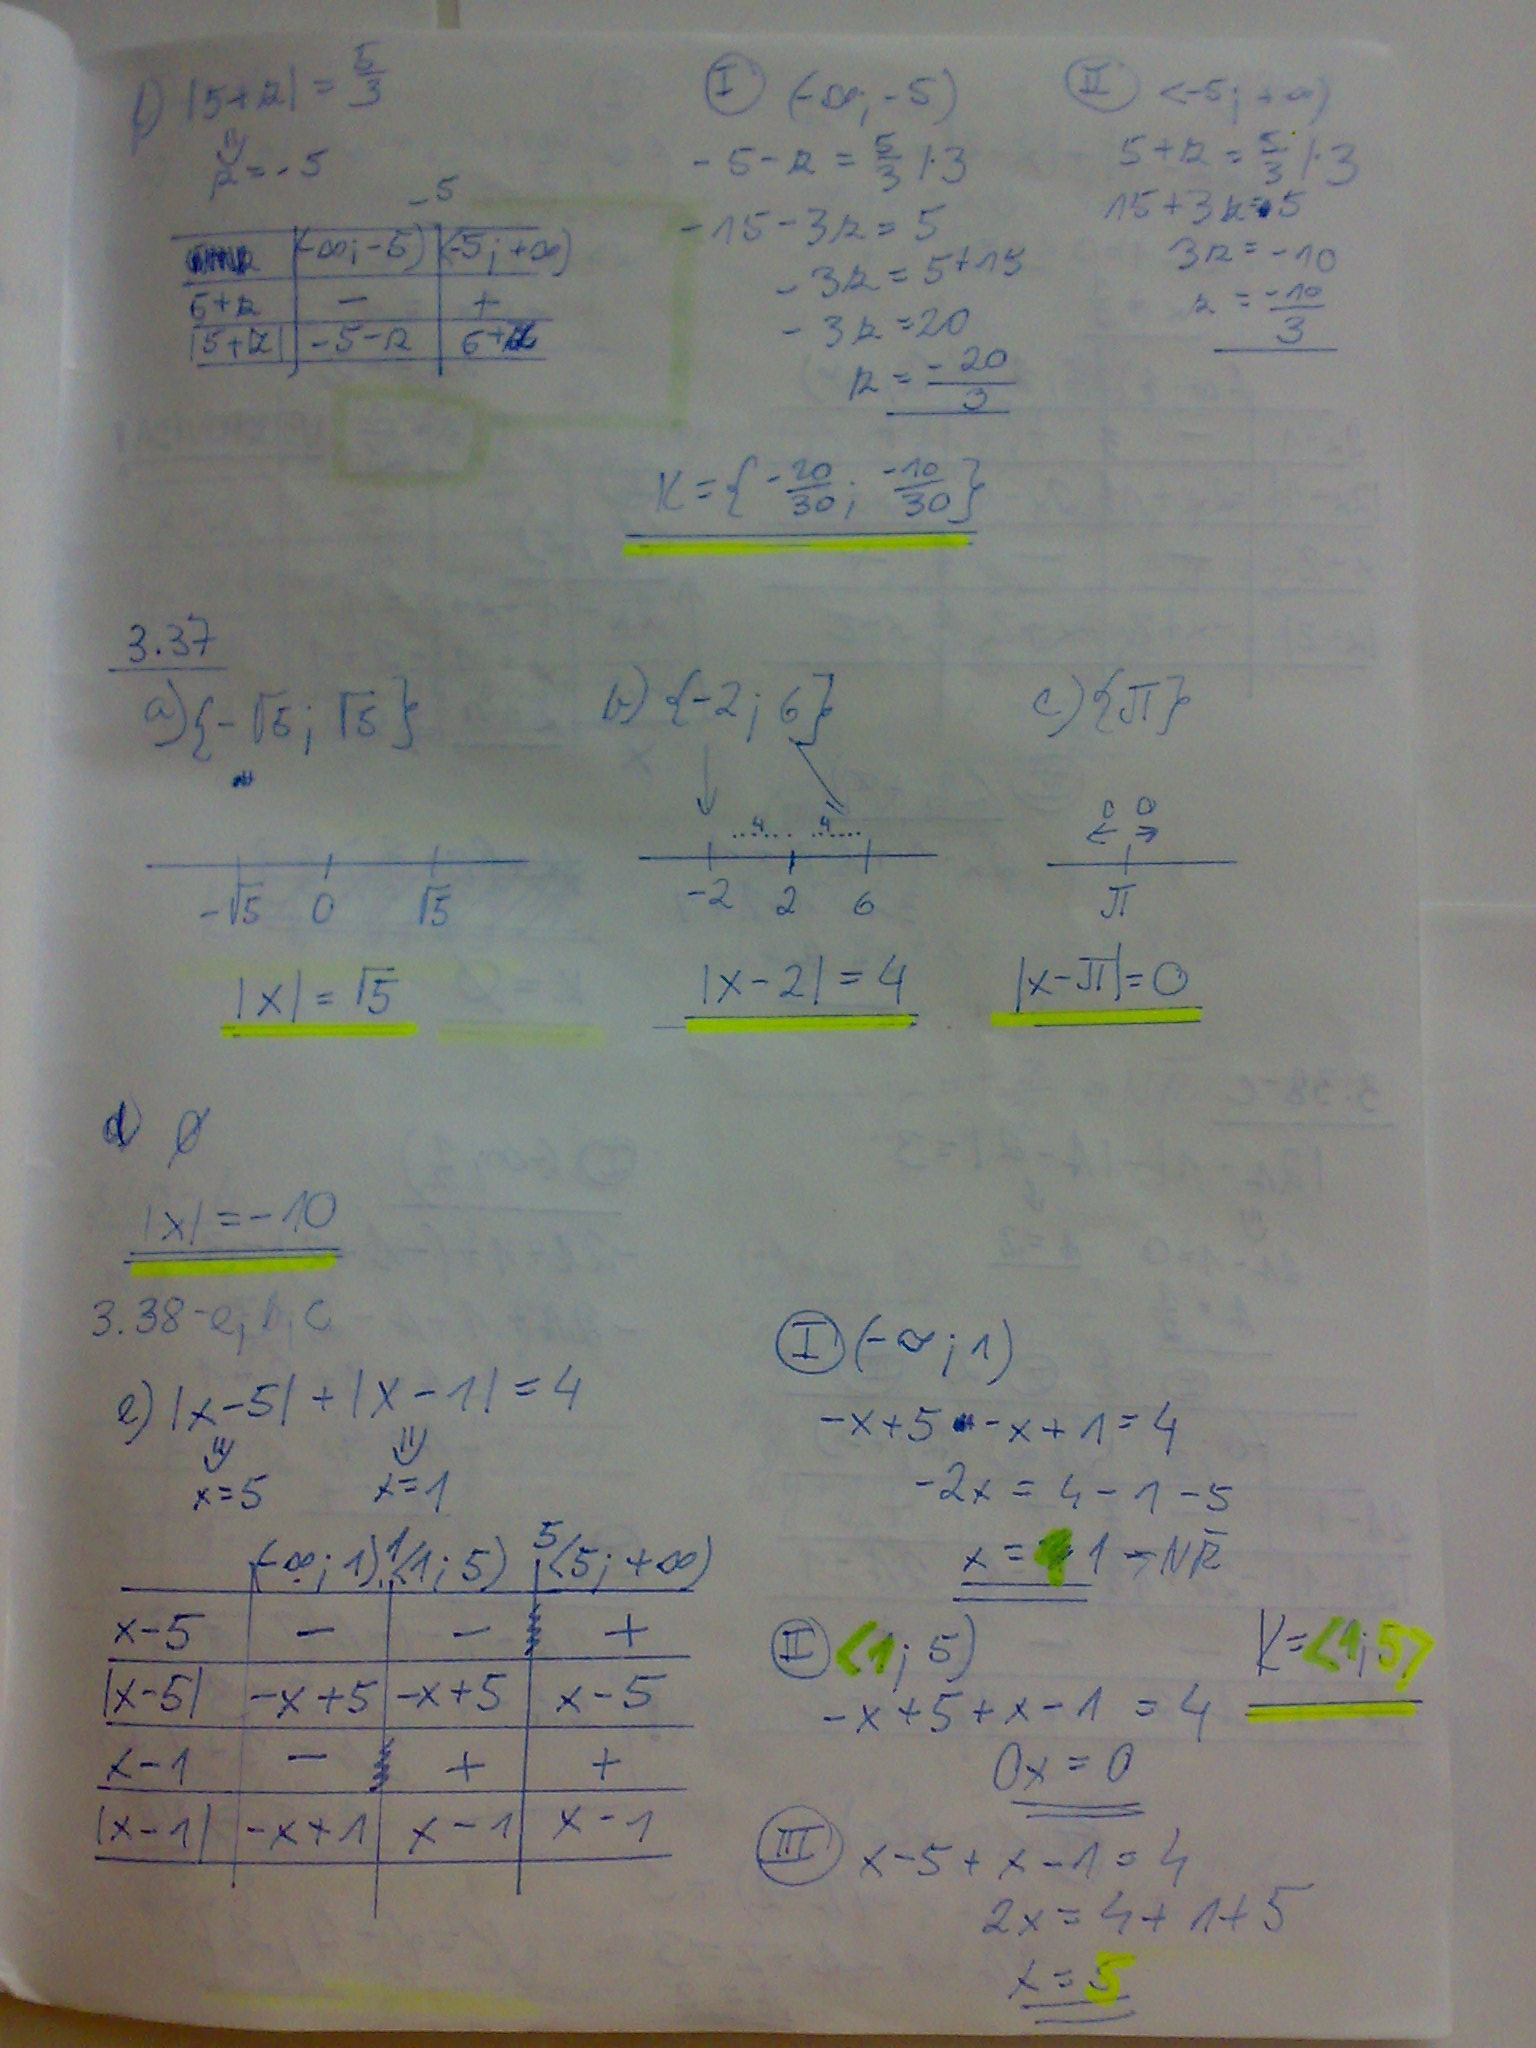 f) |5+r| = 5/3
r = -5
-5
(-∞; -5) <-5; +∞)
5+r - +
|5+r| -5-r 5+r
I (-∞; -5)
-5-r = 5/3 |·3
-15-3r = 5
-3r = 5+15
-3r = 20
r = -20/3
II <-5; +∞)
5+r = 5/3 |·3
15+3r = 5
3r = -10
r = -10/3
K = {-20/30; -10/30}
3.37
a) {-√5; √5}
-√5 0 √5
|x| = √5
b) {-2; 6}
4 4
-2 2 6
|x-2| = 4
c) {π}
0 0
π
|x-π| = 0
d) ∅
|x| = -10
3.38-e; b; c
e) |x-5| + |x-1| = 4
x=5 x=1
1 5
(-∞; 1) <1; 5) <5; +∞)
x-5 - - +
|x-5| -x+5 -x+5 x-5
x-1 - + +
|x-1| -x+1 x-1 x-1
I (-∞; 1)
-x+5 -x+1 = 4
-2x = 4-1-5
x = 1 → NŘ
II <1; 5)
-x+5+x-1 = 4
0x = 0
K = <1; 5>
III x-5+x-1 = 4
2x = 4+1+5
x = 5